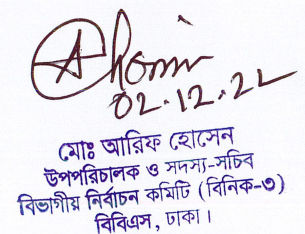 02.12.22
মোঃ আরিফ হোসেন
উপপরিচালক ও সদস্য-সচিব
বিভাগীয় নির্বাচন কমিটি (বিনিক-৩)
বিবিএস, ঢাকা।